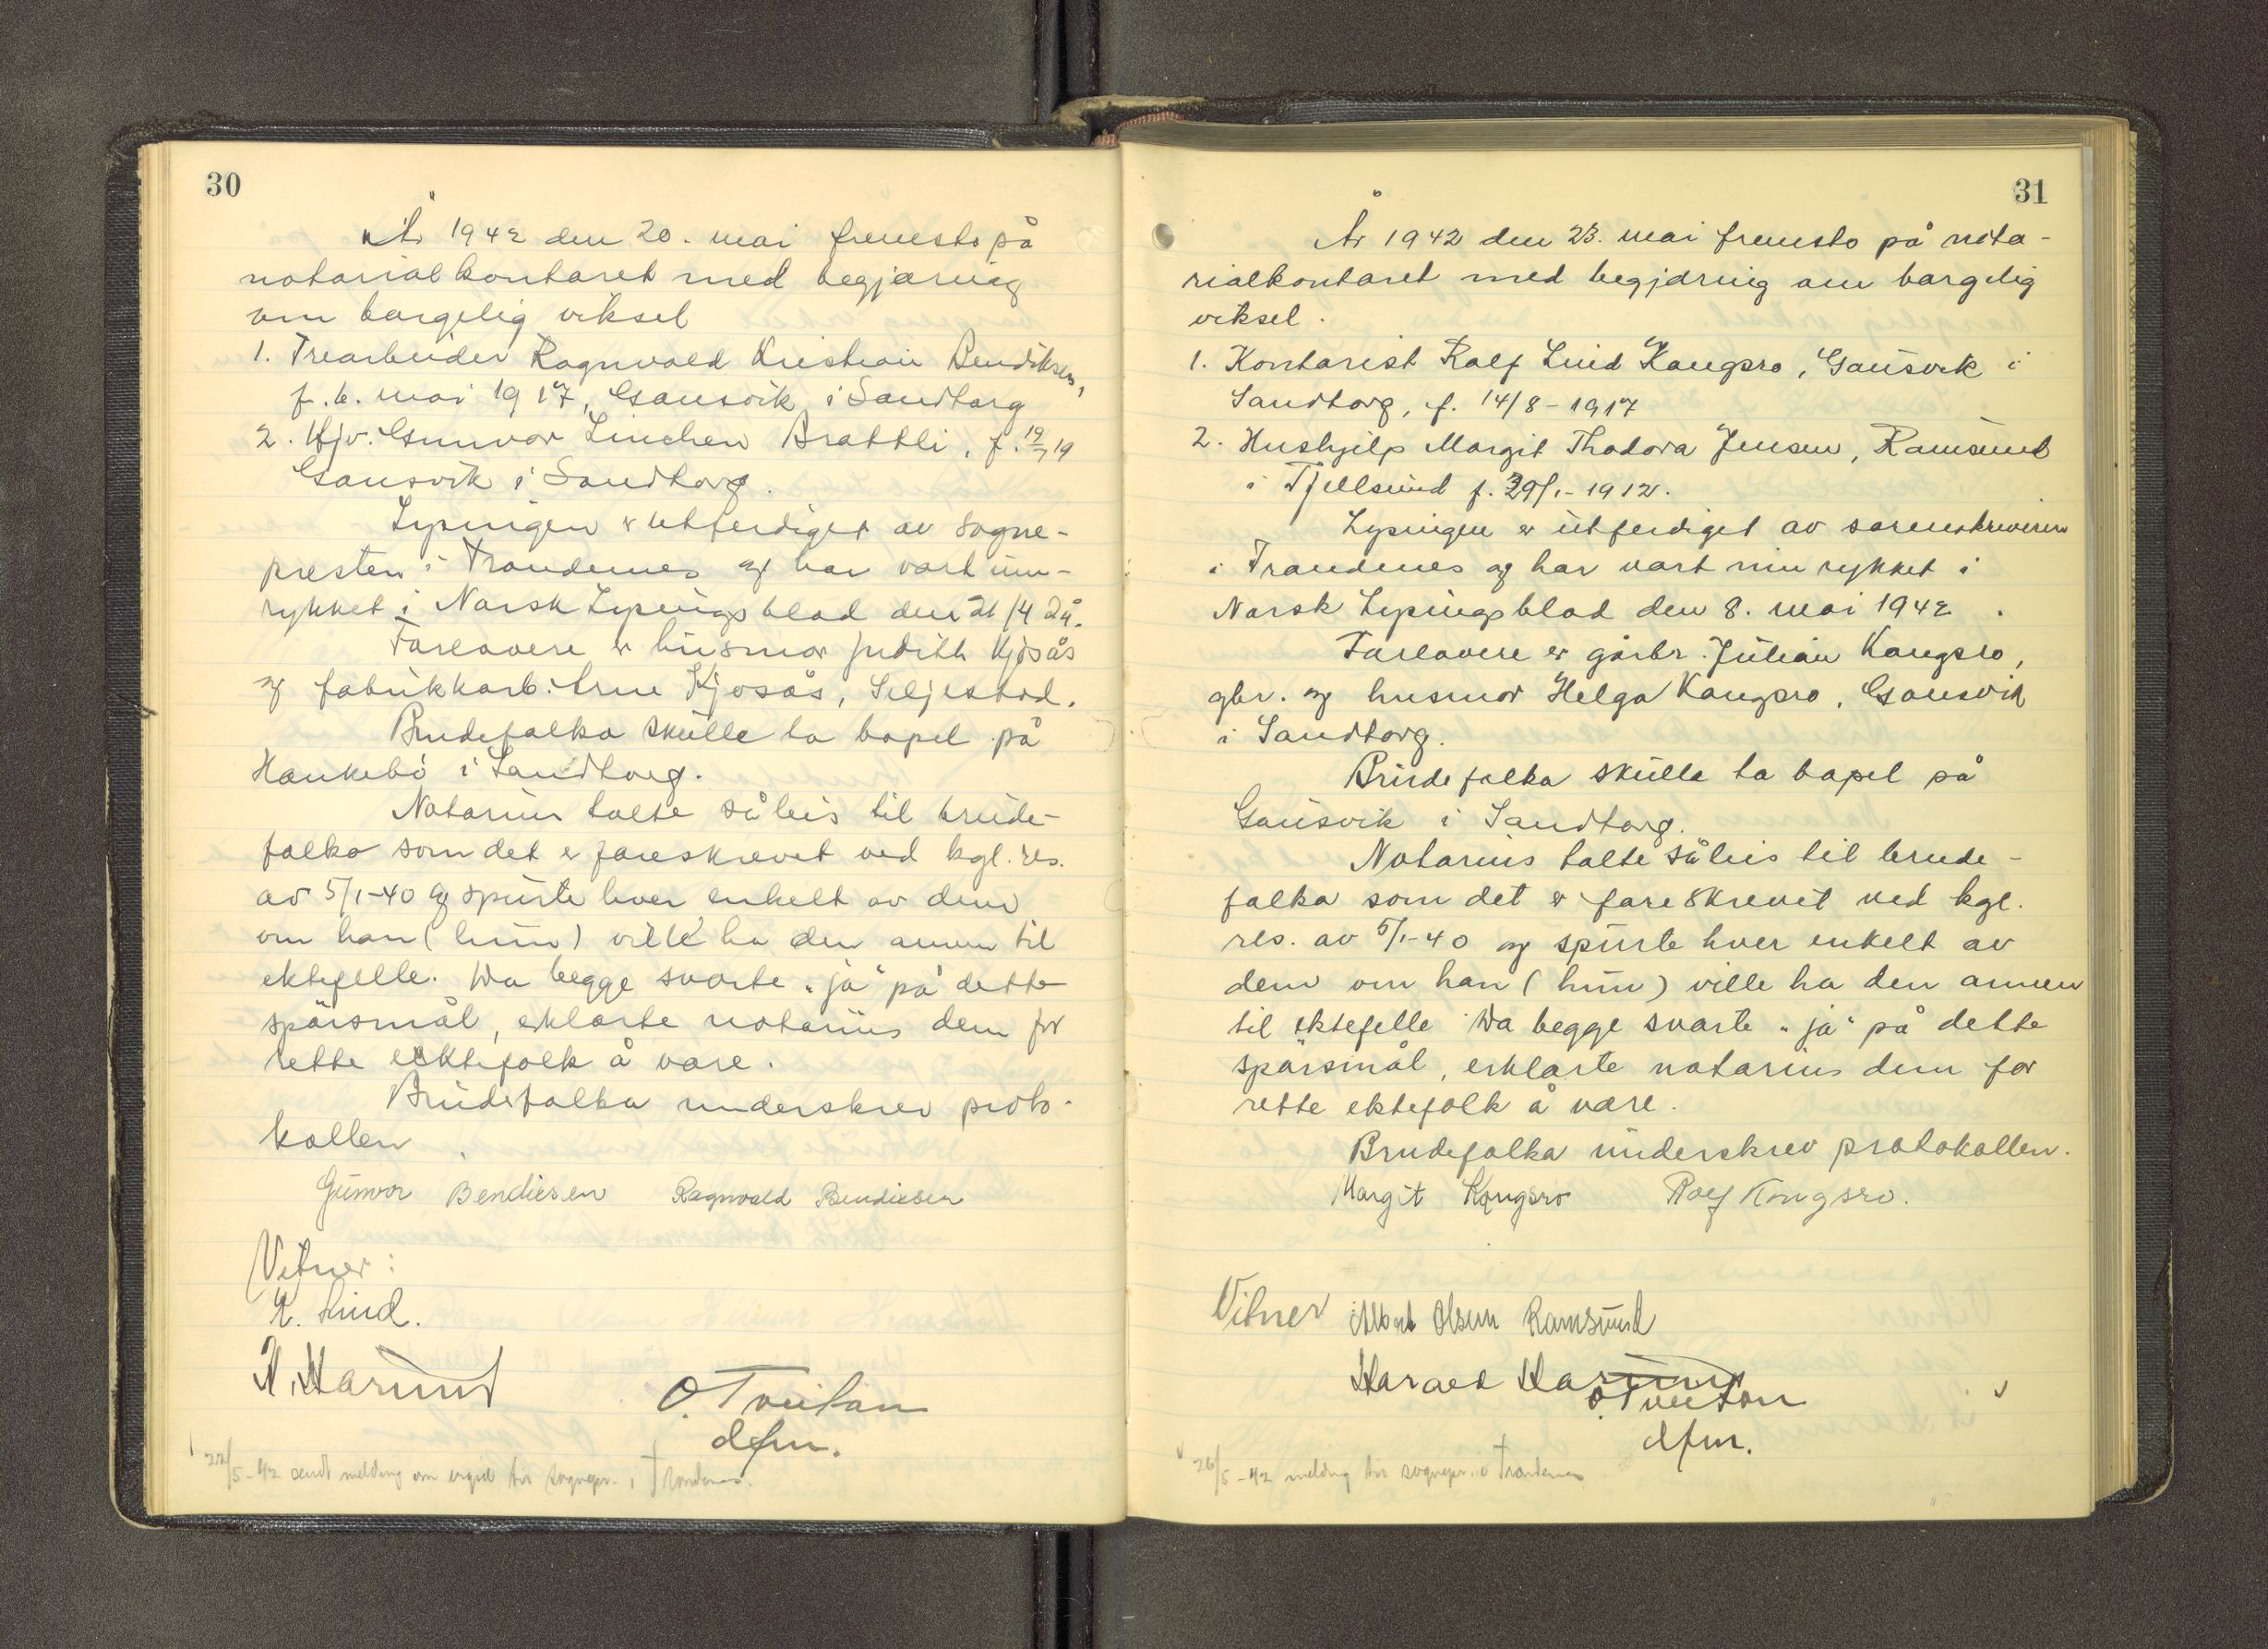 30
År 1942 den 20. mai fremsto på
notarialkontoret med begjæring
om borgelig viksel
1. Trearbeider Ragnvald Kristian Bendiksen,
f. 6. mai 1917, Gausvik i Sandtorg
2. Hjv. Gunvor Linchen Brattli, f. 19/7 19
Gausvik i Sandtorg.
Lysningen er utferdiget av sogne-
presten i Trondenes og har vært inn-
rykket i Norsk Lysingsblad den 21/4 då.
Forlovere er husmor Judith Kjosås
og fabrikkarb. Arne Kjosås, Seljestad.
Brudefolka skulle ta bopel på
i Sandtorg.
Notarius talte såleis til brude-
folka som det er foreskrevet ved kgl. res.
av 5/1-40 og spurte hver enkelt av dem
om han (hun) ville ha den annen til
ektefelle. Da begge svarte „ja" på dette
spørsmål, erklærte notarius dem for
rette ektefolk å være.
Brudefolka underskrev proto-
kollen.
Gunvor Bendiksen Ragnvald Bendiksen
Vitner:
K. Lind.
H. Marund
O. Tveitan
dfm.
22/5-42 sendt melding om vigsel til sognepr. i Trondenes.
31
År 1942 den 23. mai fremsto på nota-
rialkontoret med begjæring om borgelig
viksel.
1. Kontorist Rolf Lind Kongsro, Gausvik i
Sandtorg, f. 14/8-1917
2. Hushjelp Margit Thodora Jensen, Ramsund
i Tjeldsund f. 29/1-1912.
Lysingen er utferdiget av sorenskriveren
i Trondenes og har vært innrykket i
Norsk Lysingsblad den 8. mai 1942.
Forlovere er gårbr. Julian Kongsro,
gbr. og husmor Helga Kongsro, Gausvik
i Sandtorg.
Brudefolka skulle ta bopel på
Gausvik i Sandtorg.
Notarius talte såleis til brude-
folka som det er foreskrevet ved kgl.
res. av 5/1-40 og spurte hver enkelt av
dem om han (hun) ville ha den annen
til ektefelle Da begge svarte „ja" på dette
spørsmål, erklærte notarius dem for
rette ektefolk å være.
Brudefolka underskrev protokollen.
Margit Kongsro Rolf Kongsro.
Vitner Albert Olsen Ramsund
Harald Marund
O. Tveitan
dfm.
26/5-42 melding til sognepr. i Trondenes